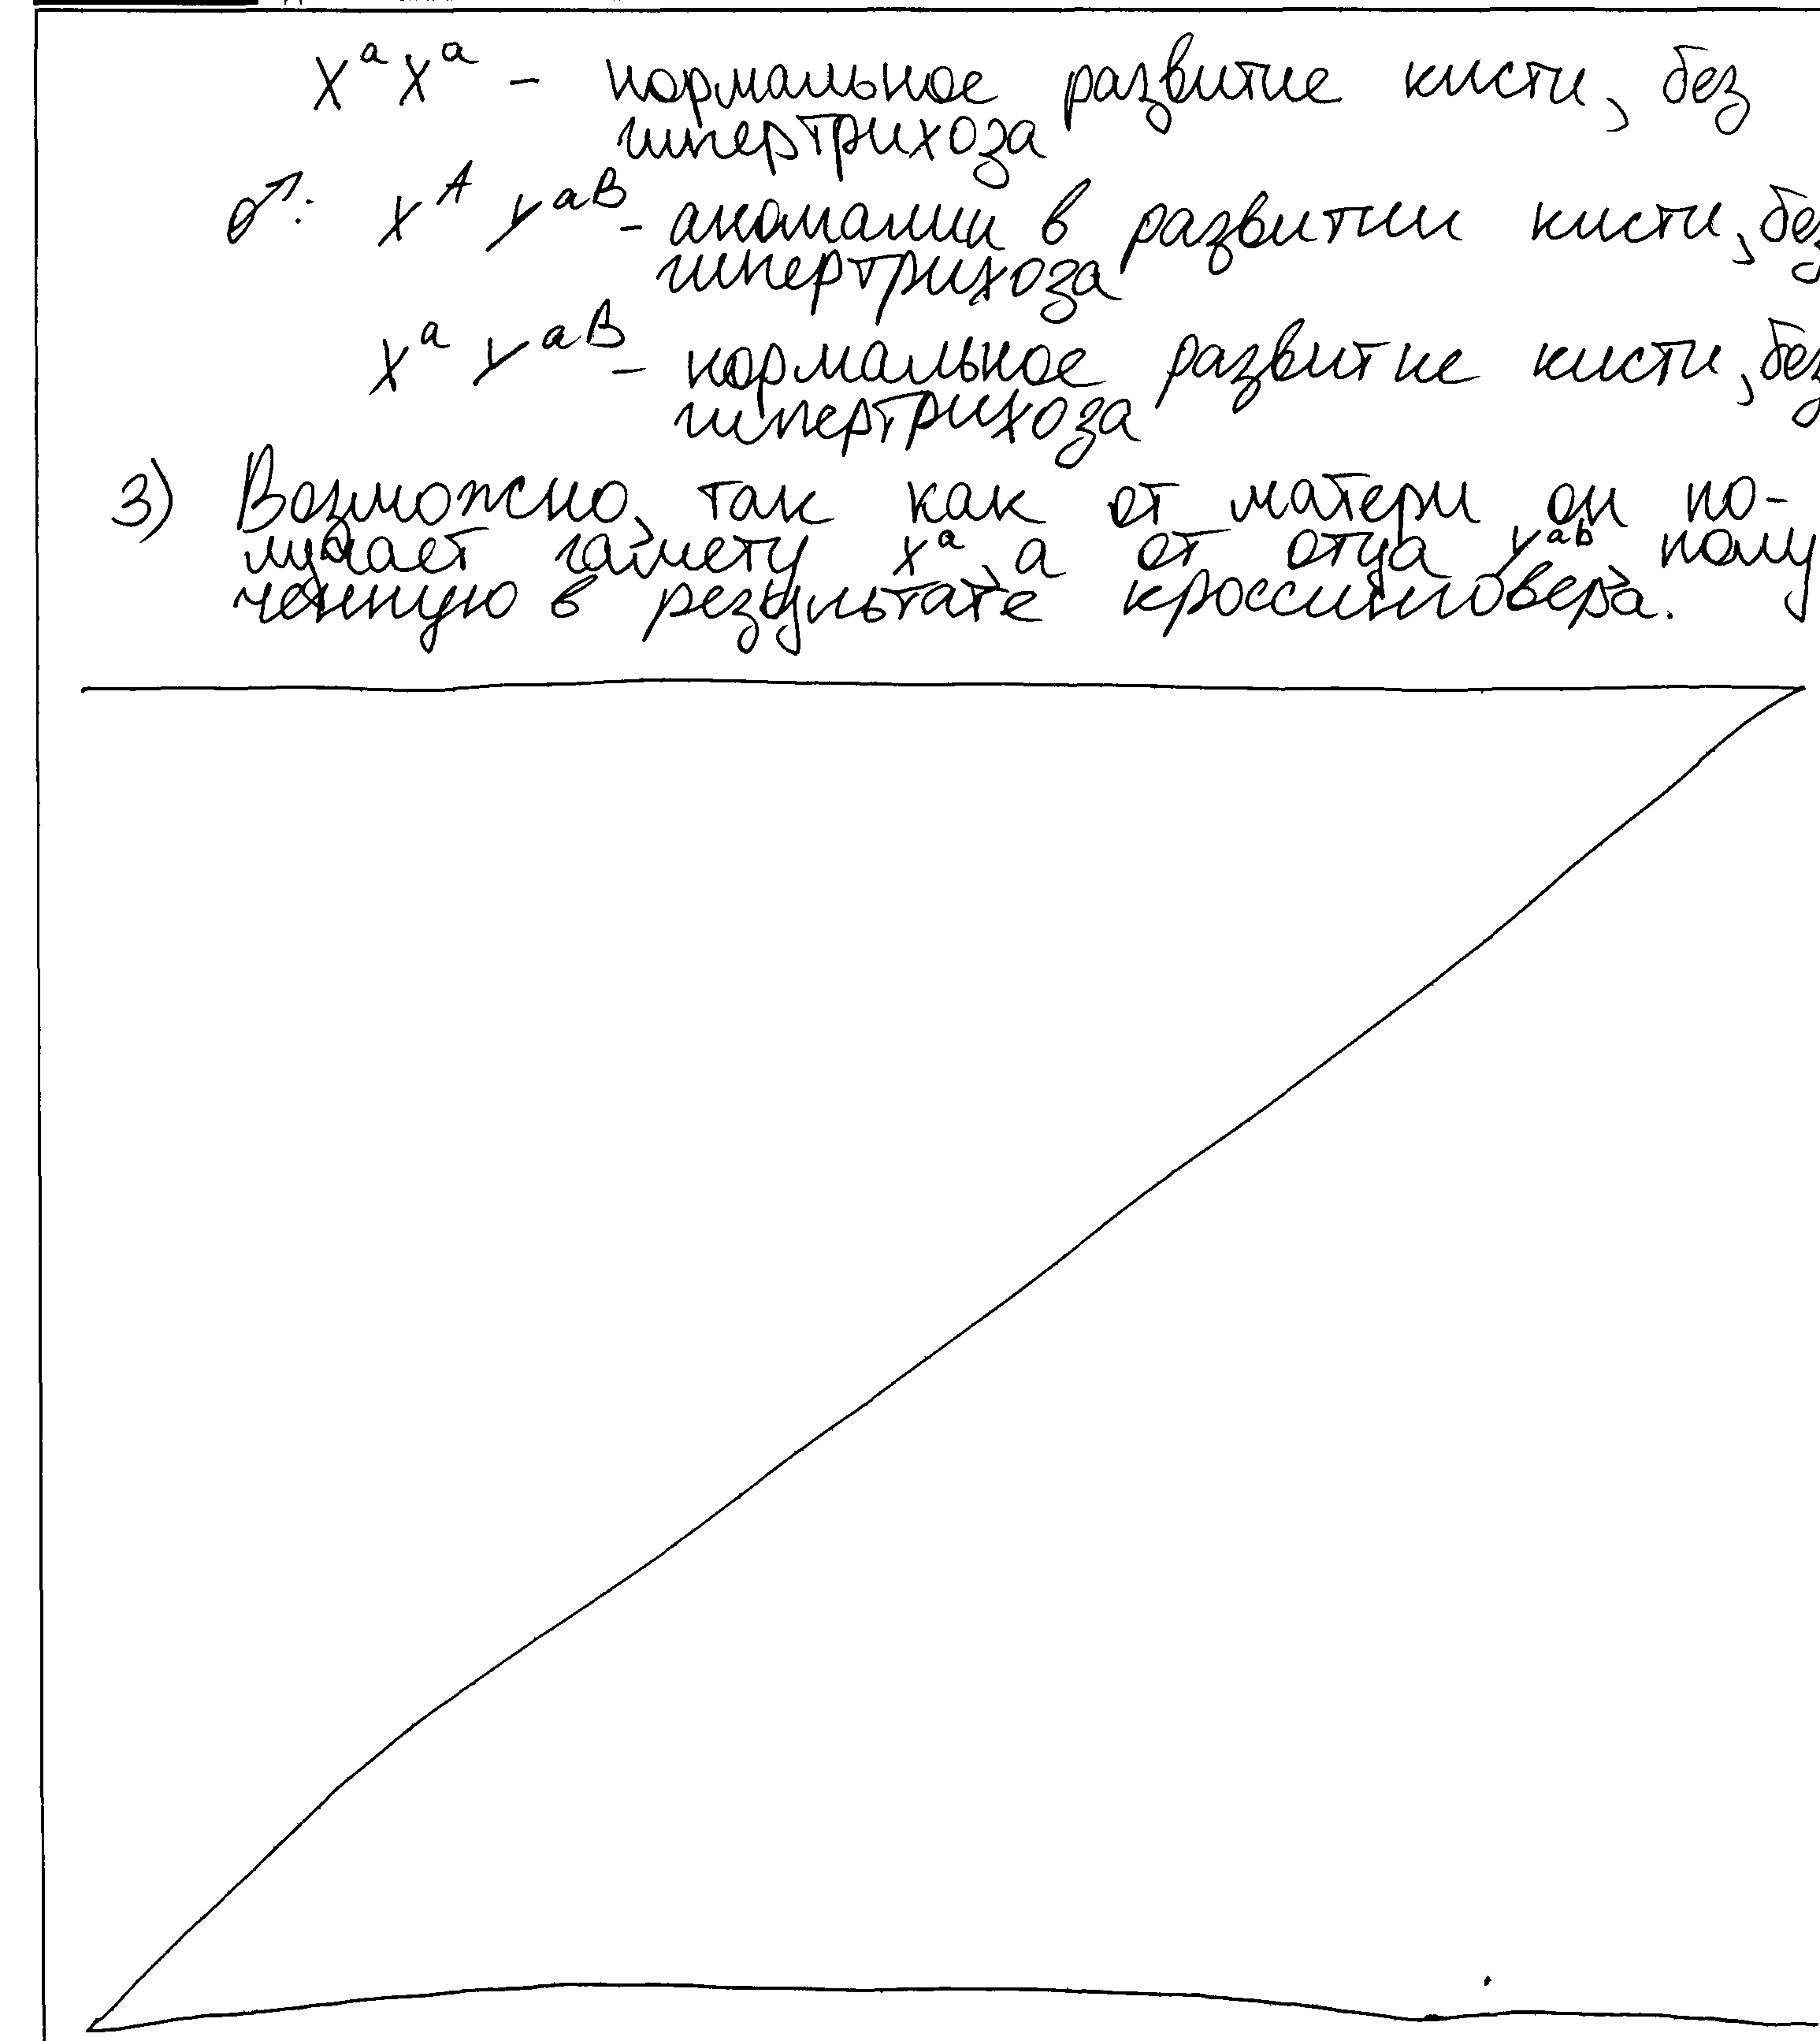 X^a X^a – нормальное развитие кисти, без
гипертрихоза
♂: X^A Y^aB – аномалии в развитии кисти, без
гипертрихоза
X^a Y^aB – нормальное развитие кисти, без
гипертрихоза
3) Возможно, так как от матери он по-
лучает гамету X^a, а от отца Y^ab, полу
ченную в результате кроссинговера.